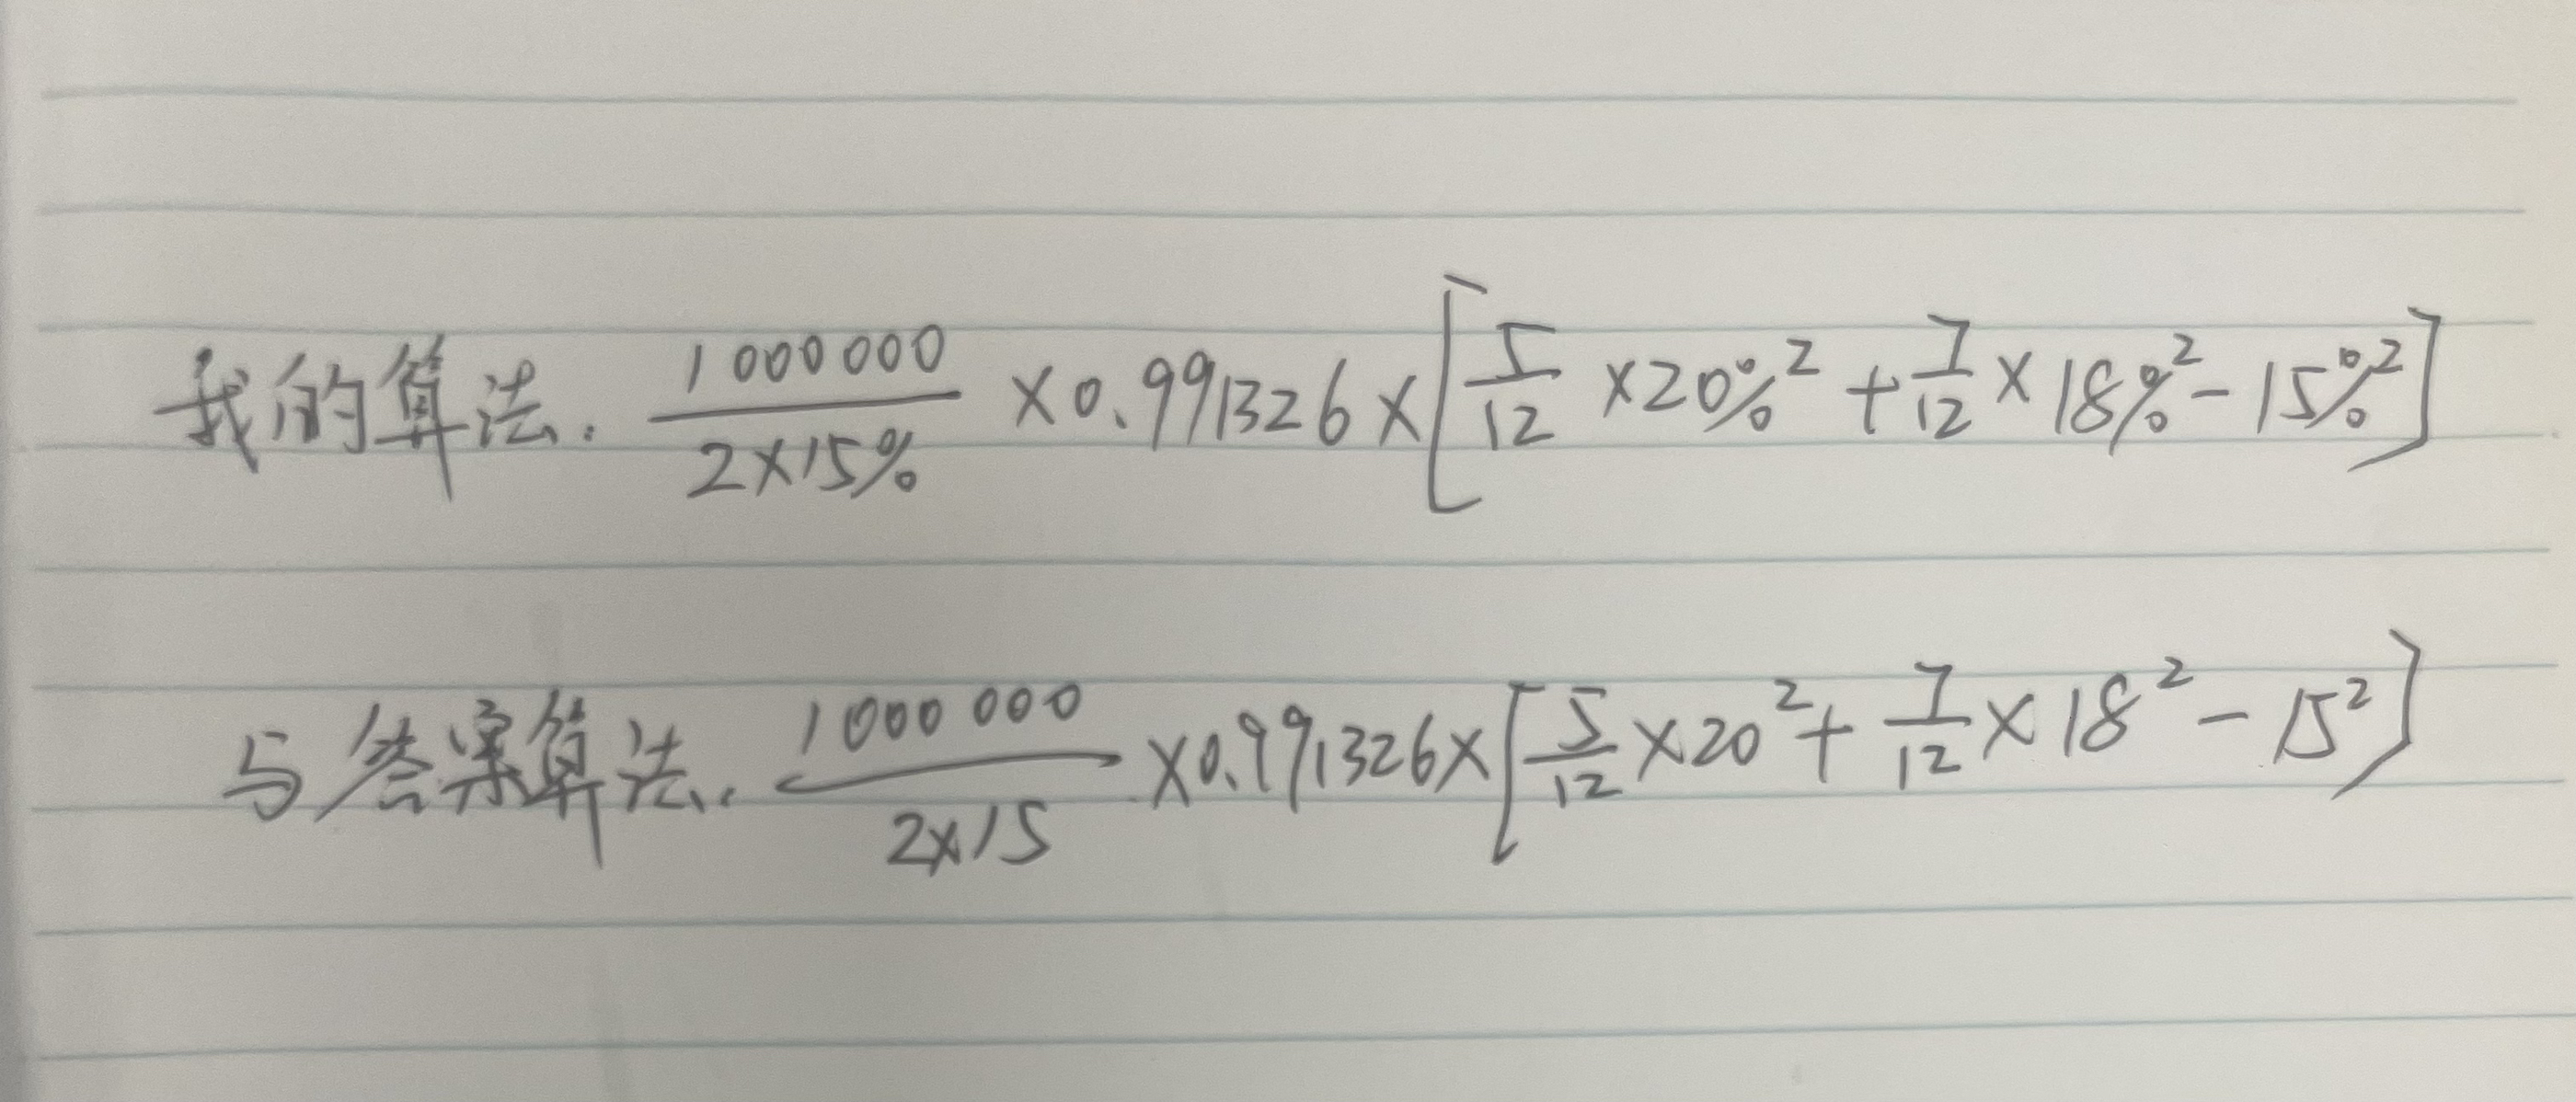 我的算法. 1000000/2×15% ×0.991326×[5/12 ×20%² + 7/12 × 18%² - 15%²]
与答案算法. 1000000/2×15 ×0.991326×[5/12 ×20² + 7/12 × 18² - 15²]